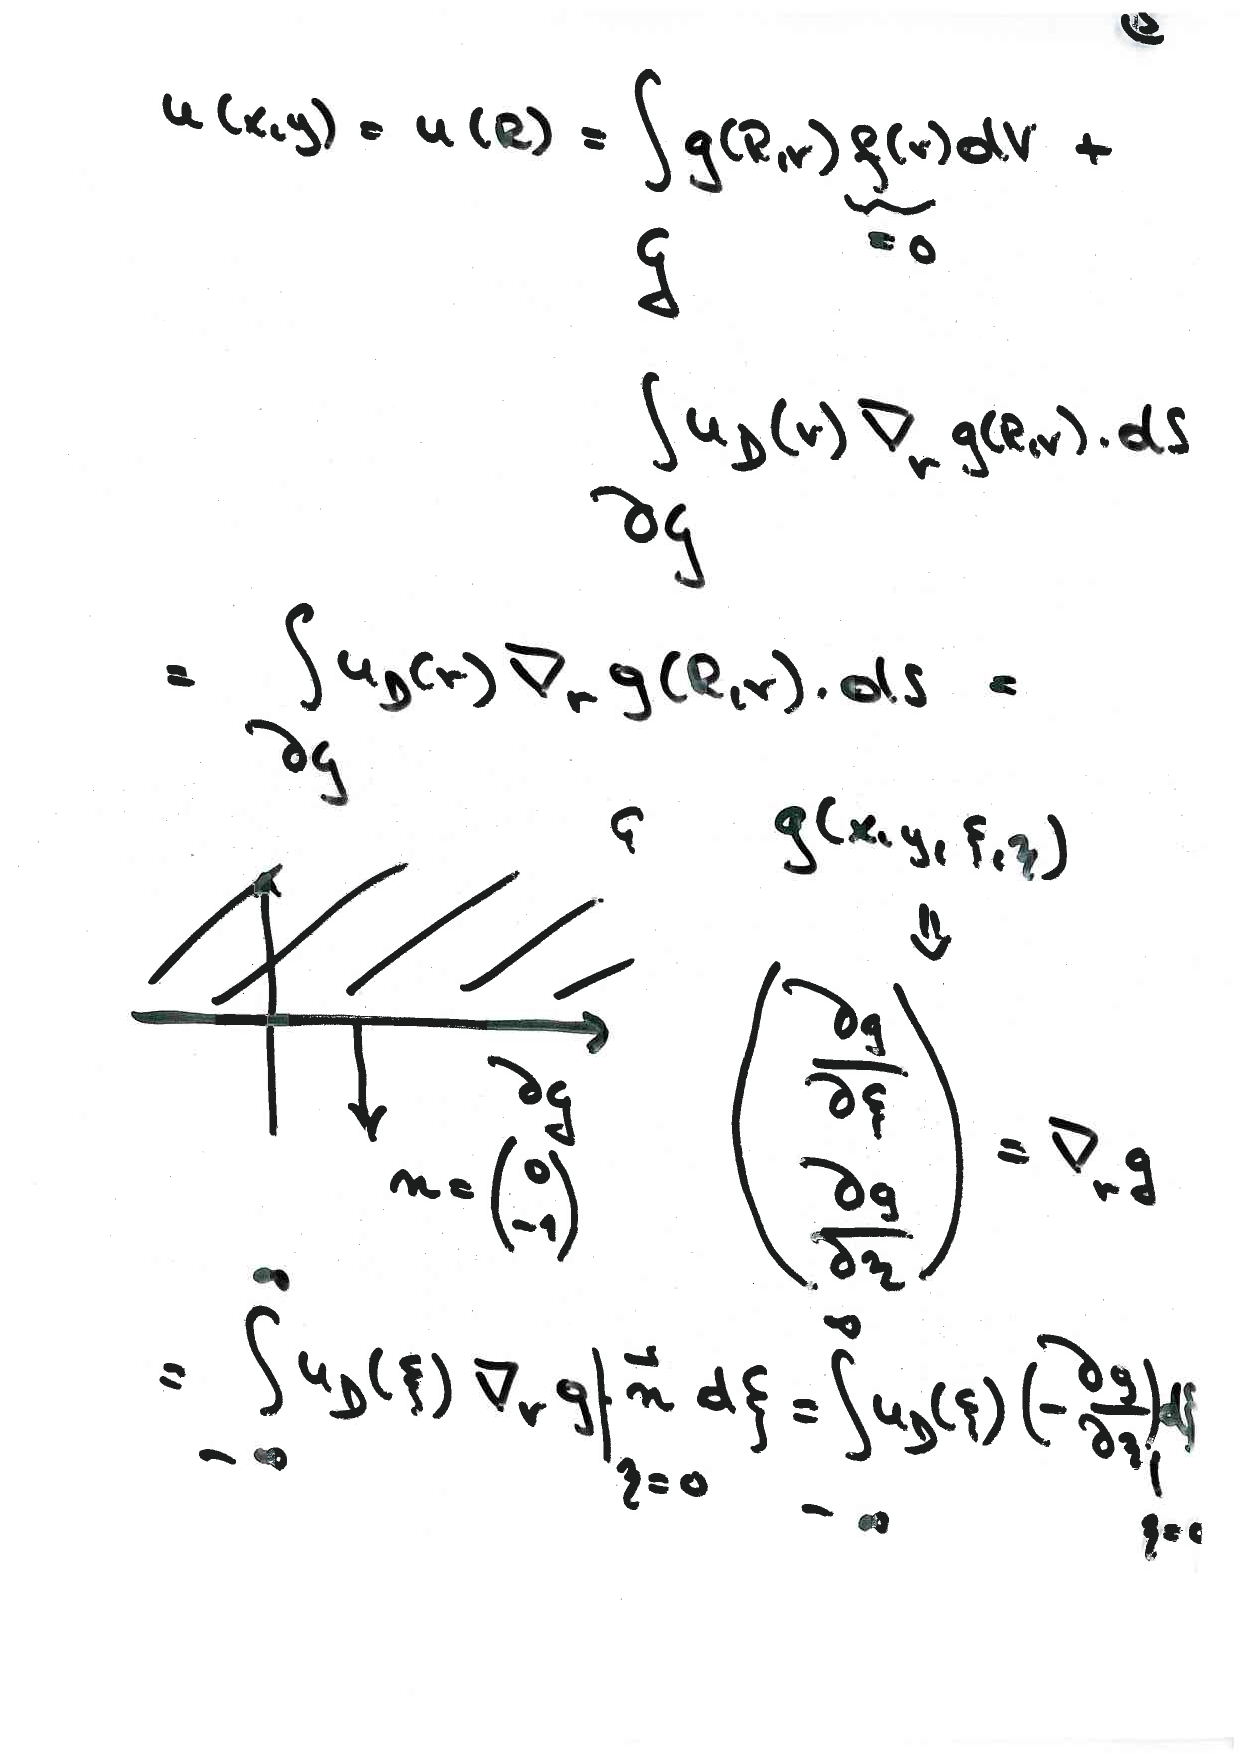 u(x,y) = u(R) = ∫ g(R,r) ρ(r) dV +
= 0
G
∫ u_D(r) ∇_r g(R,r) · dS
∂G
= ∫ u_D(r) ∇_r g(R,r) · dS =
∂G
G g(x,y,ξ,η)
⇓
∂G
n = (0 -1)
(∂g/∂ξ ∂g/∂η) = ∇_r g
∞ ∞
= ∫ u_D(ξ) ∇_r g| · n⃗ dξ = ∫ u_D(ξ) (-∂g/∂η)| dξ
-∞ η=0 -∞ η=0